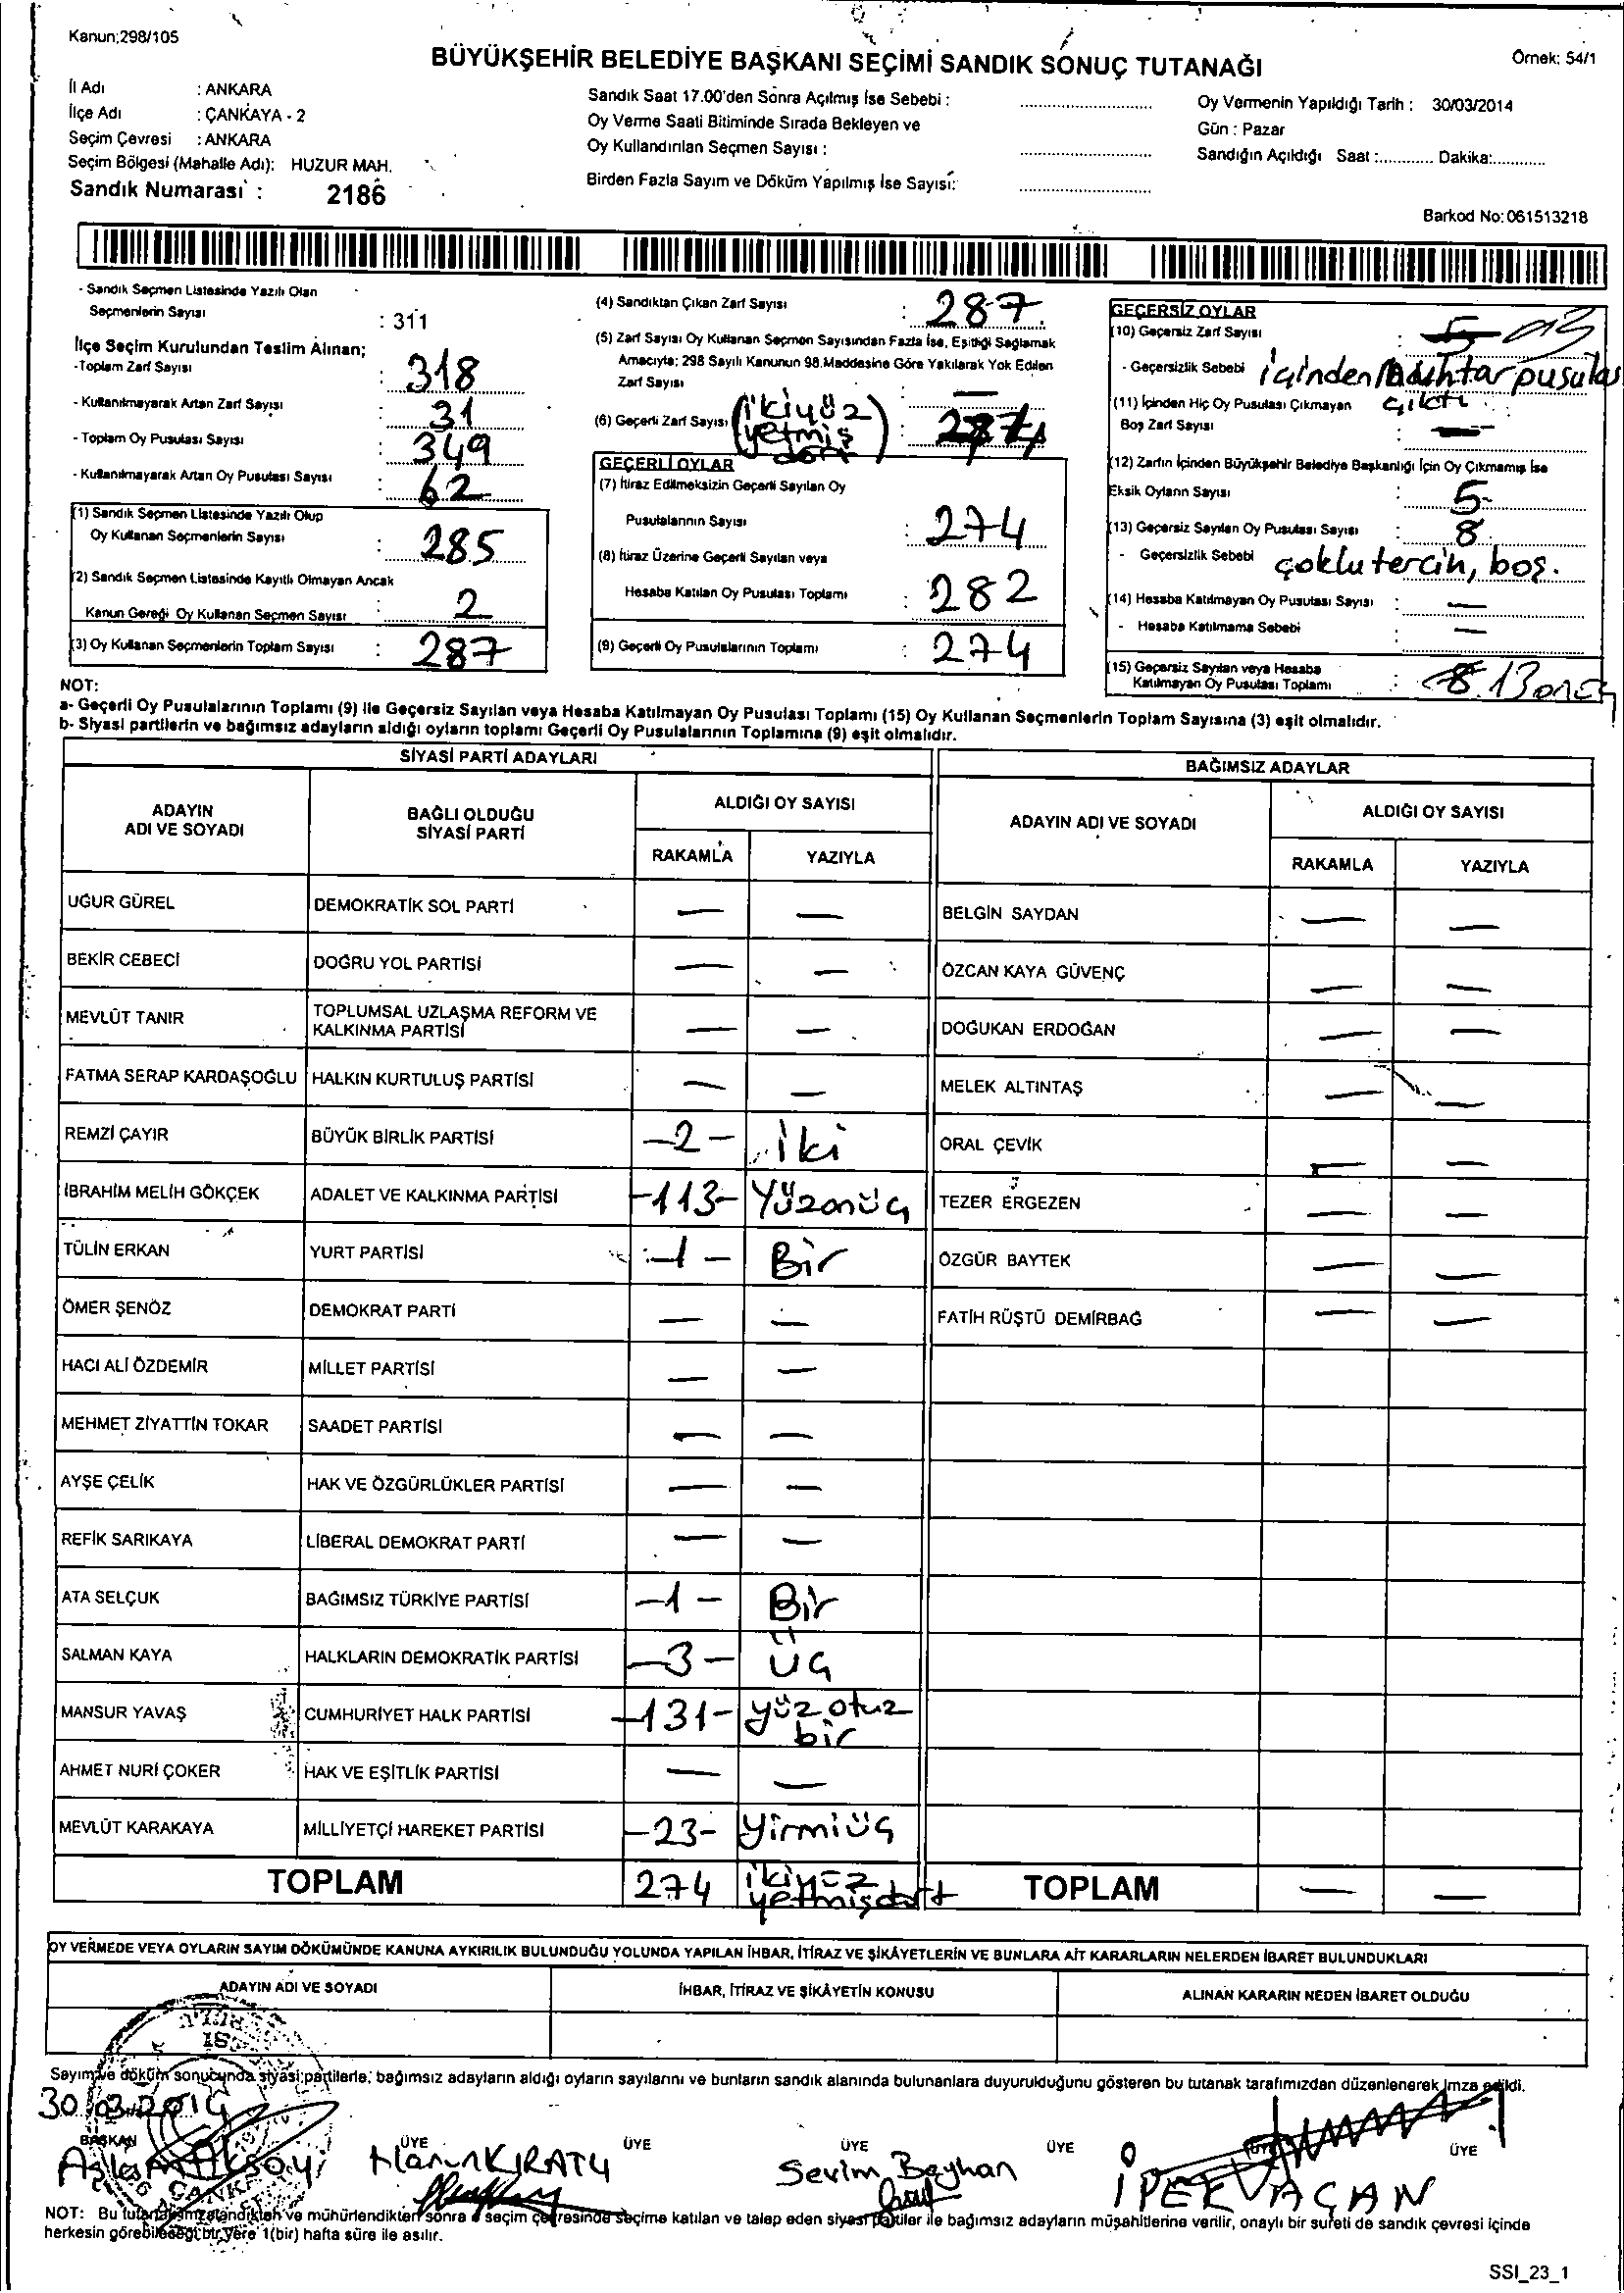 Kanun;298/105
BÜYÜKŞEHİR BELEDİYE BAŞKANI SEÇİMİ SANDIK SONUÇ TUTANAĞI
Örnek: 54/1
İl Adı : ANKARA
İlçe Adı : ÇANKAYA - 2
Seçim Çevresi : ANKARA
Seçim Bölgesi (Mahalle Adı): HUZUR MAH.
Sandık Numarası : 2186
Sandık Saat 17.00'den Sonra Açılmış İse Sebebi :
Oy Verme Saati Bitiminde Sırada Bekleyen ve
Oy Kullandırılan Seçmen Sayısı :
Birden Fazla Sayım ve Döküm Yapılmış İse Sayısı:
Oy Vermenin Yapıldığı Tarih : 30/03/2014
Gün : Pazar
Sandığın Açıldığı Saat :............ Dakika:............
Barkod No:061513218
- Sandık Seçmen Listesinde Yazılı Olan
Seçmenlerin Sayısı : 311
İlçe Seçim Kurulundan Teslim Alınan;
-Toplam Zarf Sayısı : 318
- Kullanılmayarak Artan Zarf Sayısı : 31
- Toplam Oy Pusulası Sayısı : 349
- Kullanılmayarak Artan Oy Pusulası Sayısı : 62
(1) Sandık Seçmen Listesinde Yazılı Olup
Oy Kullanan Seçmenlerin Sayısı : 285
(2) Sandık Seçmen Listesinde Kayıtlı Olmayan Ancak
Kanun Gereği Oy Kullanan Seçmen Sayısı : 2
(3) Oy Kullanan Seçmenlerin Toplam Sayısı : 287
(4) Sandıktan Çıkan Zarf Sayısı : 287
(5) Zarf Sayısı Oy Kullanan Seçmen Sayısından Fazla İse, Eşitliği Sağlamak
Amacıyla; 298 Sayılı Kanunun 98.Maddesine Göre Yakılarak Yok Edilen
Zarf Sayısı : —
(6) Geçerli Zarf Sayısı (ikiyüz yetmiş dört) : 274
GEÇERLİ OYLAR
(7) İtiraz Edilmeksizin Geçerli Sayılan Oy
Pusulalarının Sayısı : 274
(8) İtiraz Üzerine Geçerli Sayılan veya
Hesaba Katılan Oy Pusulası Toplamı : 282
(9) Geçerli Oy Pusulalarının Toplamı : 274
GEÇERSİZ OYLAR
(10) Geçersiz Zarf Sayısı : 5
- Geçersizlik Sebebi içinden Muhtar pusulası
çıktı
(11) İçinden Hiç Oy Pusulası Çıkmayan
Boş Zarf Sayısı : —
(12) Zarfın İçinden Büyükşehir Belediye Başkanlığı İçin Oy Çıkmamış İse
Eksik Oyların Sayısı : 5
(13) Geçersiz Sayılan Oy Pusulası Sayısı : 8
- Geçersizlik Sebebi çoklu tercih, boş.
(14) Hesaba Katılmayan Oy Pusulası Sayısı : —
- Hesaba Katılmama Sebebi : —
(15) Geçersiz Sayılan veya Hesaba
Katılmayan Oy Pusulası Toplamı : 8 13 onüç
NOT:
a- Geçerli Oy Pusulalarının Toplamı (9) ile Geçersiz Sayılan veya Hesaba Katılmayan Oy Pusulası Toplamı (15) Oy Kullanan Seçmenlerin Toplam Sayısına (3) eşit olmalıdır.
b- Siyasi partilerin ve bağımsız adayların aldığı oyların toplamı Geçerli Oy Pusulalarının Toplamına (9) eşit olmalıdır.
SİYASİ PARTİ ADAYLARI
BAĞIMSIZ ADAYLAR
ADAYIN ADI VE SOYADI
BAĞLI OLDUĞU SİYASİ PARTİ
ALDIĞI OY SAYISI
RAKAMLA YAZIYLA
ADAYIN ADI VE SOYADI
ALDIĞI OY SAYISI
RAKAMLA YAZIYLA
UĞUR GÜREL DEMOKRATİK SOL PARTİ — — BELGİN SAYDAN — —
BEKİR CEBECİ DOĞRU YOL PARTİSİ — — ÖZCAN KAYA GÜVENÇ — —
MEVLÜT TANIR TOPLUMSAL UZLAŞMA REFORM VE KALKINMA PARTİSİ — — DOĞUKAN ERDOĞAN — —
FATMA SERAP KARDAŞOĞLU HALKIN KURTULUŞ PARTİSİ — — MELEK ALTINTAŞ — —
REMZİ ÇAYIR BÜYÜK BİRLİK PARTİSİ -2- iki ORAL ÇEVİK — —
İBRAHİM MELİH GÖKÇEK ADALET VE KALKINMA PARTİSİ -113- Yüzonüç TEZER ERGEZEN — —
TÜLİN ERKAN YURT PARTİSİ -1- Bir ÖZGÜR BAYTEK — —
ÖMER ŞENÖZ DEMOKRAT PARTİ — — FATİH RÜŞTÜ DEMİRBAĞ — —
HACI ALİ ÖZDEMİR MİLLET PARTİSİ — —
MEHMET ZİYATTİN TOKAR SAADET PARTİSİ — —
AYŞE ÇELİK HAK VE ÖZGÜRLÜKLER PARTİSİ — —
REFİK SARIKAYA LİBERAL DEMOKRAT PARTİ — —
ATA SELÇUK BAĞIMSIZ TÜRKİYE PARTİSİ -1- Bir
SALMAN KAYA HALKLARIN DEMOKRATİK PARTİSİ -3- üç
MANSUR YAVAŞ CUMHURİYET HALK PARTİSİ -131- yüz otuz bir
AHMET NURİ ÇOKER HAK VE EŞİTLİK PARTİSİ — —
MEVLÜT KARAKAYA MİLLİYETÇİ HAREKET PARTİSİ -23- Yirmiüç
TOPLAM 274 ikiyüz yetmişdört TOPLAM — —
OY VERMEDE VEYA OYLARIN SAYIM DÖKÜMÜNDE KANUNA AYKIRILIK BULUNDUĞU YOLUNDA YAPILAN İHBAR, İTİRAZ VE ŞİKÂYETLERİN VE BUNLARA AİT KARARLARIN NELERDEN İBARET BULUNDUKLARI
ADAYIN ADI VE SOYADI İHBAR, İTİRAZ VE ŞİKÂYETİN KONUSU ALINAN KARARIN NEDEN İBARET OLDUĞU
Sayım ve döküm sonucunda siyasi partilerle, bağımsız adayların aldığı oyların sayılarını ve bunların sandık alanında bulunanlara duyurulduğunu gösteren bu tutanak tarafımızdan düzenlenerek imza edildi.
30.03.2014
BAŞKAN ÜYE ÜYE ÜYE ÜYE ÜYE ÜYE
Sevim Beyhan İPEK AÇAN
NOT: Bu tutanak imzalandıktan ve mühürlendikten sonra seçim çevresinde seçime katılan ve talep eden siyasi partiler ile bağımsız adayların müşahitlerine verilir, onaylı bir sureti de sandık çevresi içinde
herkesin görebileceği bir yere 1(bir) hafta süre ile asılır.
SSI_23_1